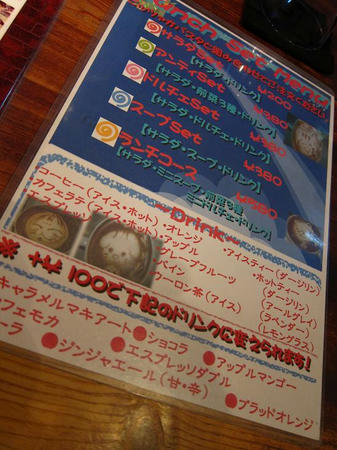 Lunch Set Menu
サラダSet ¥200
【サラダ・ドリンク】
アンティSet ¥380
【サラダ・前菜3種・ドリンク】
ドルチェSet ¥380
【サラダ・ドルチェ・ドリンク】
スープSet ¥380
【サラダ・スープ・ドリンク】
ランチコース
【サラダ・ミニスープ・前菜3種
ドルチェ・ドリンク】
Drink
コーヒー(アイス・ホット)
カフェラテ(アイス・ホット)
・オレンジ
・アップル
グレープフルーツ
パイン
ウーロン茶(アイス)
・アイスティー(ダージリン)
・ホットティー
(ダージリン)
(アールグレイ)
(ラベンダー)
(レモングラス)
※ +¥100で下記のドリンクに変えられます!
キャラメルマキアート
●ショコラ
●アップルマンゴー
カフェモカ
●エスプレッソダブル
●ジンジャエール(甘・辛)
●ブラッドオレンジ